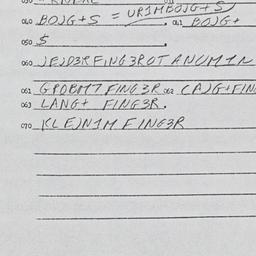 040 BOJG+S = UR1MBOJG+S 041 BOJG+
050 $
060 JEJD3RFING3ROTANUM1N
061 GPOBM7 FING3R 062 CAJG+FIN
063 LANG+ FING3R.
070 KLEJN1M FING3R